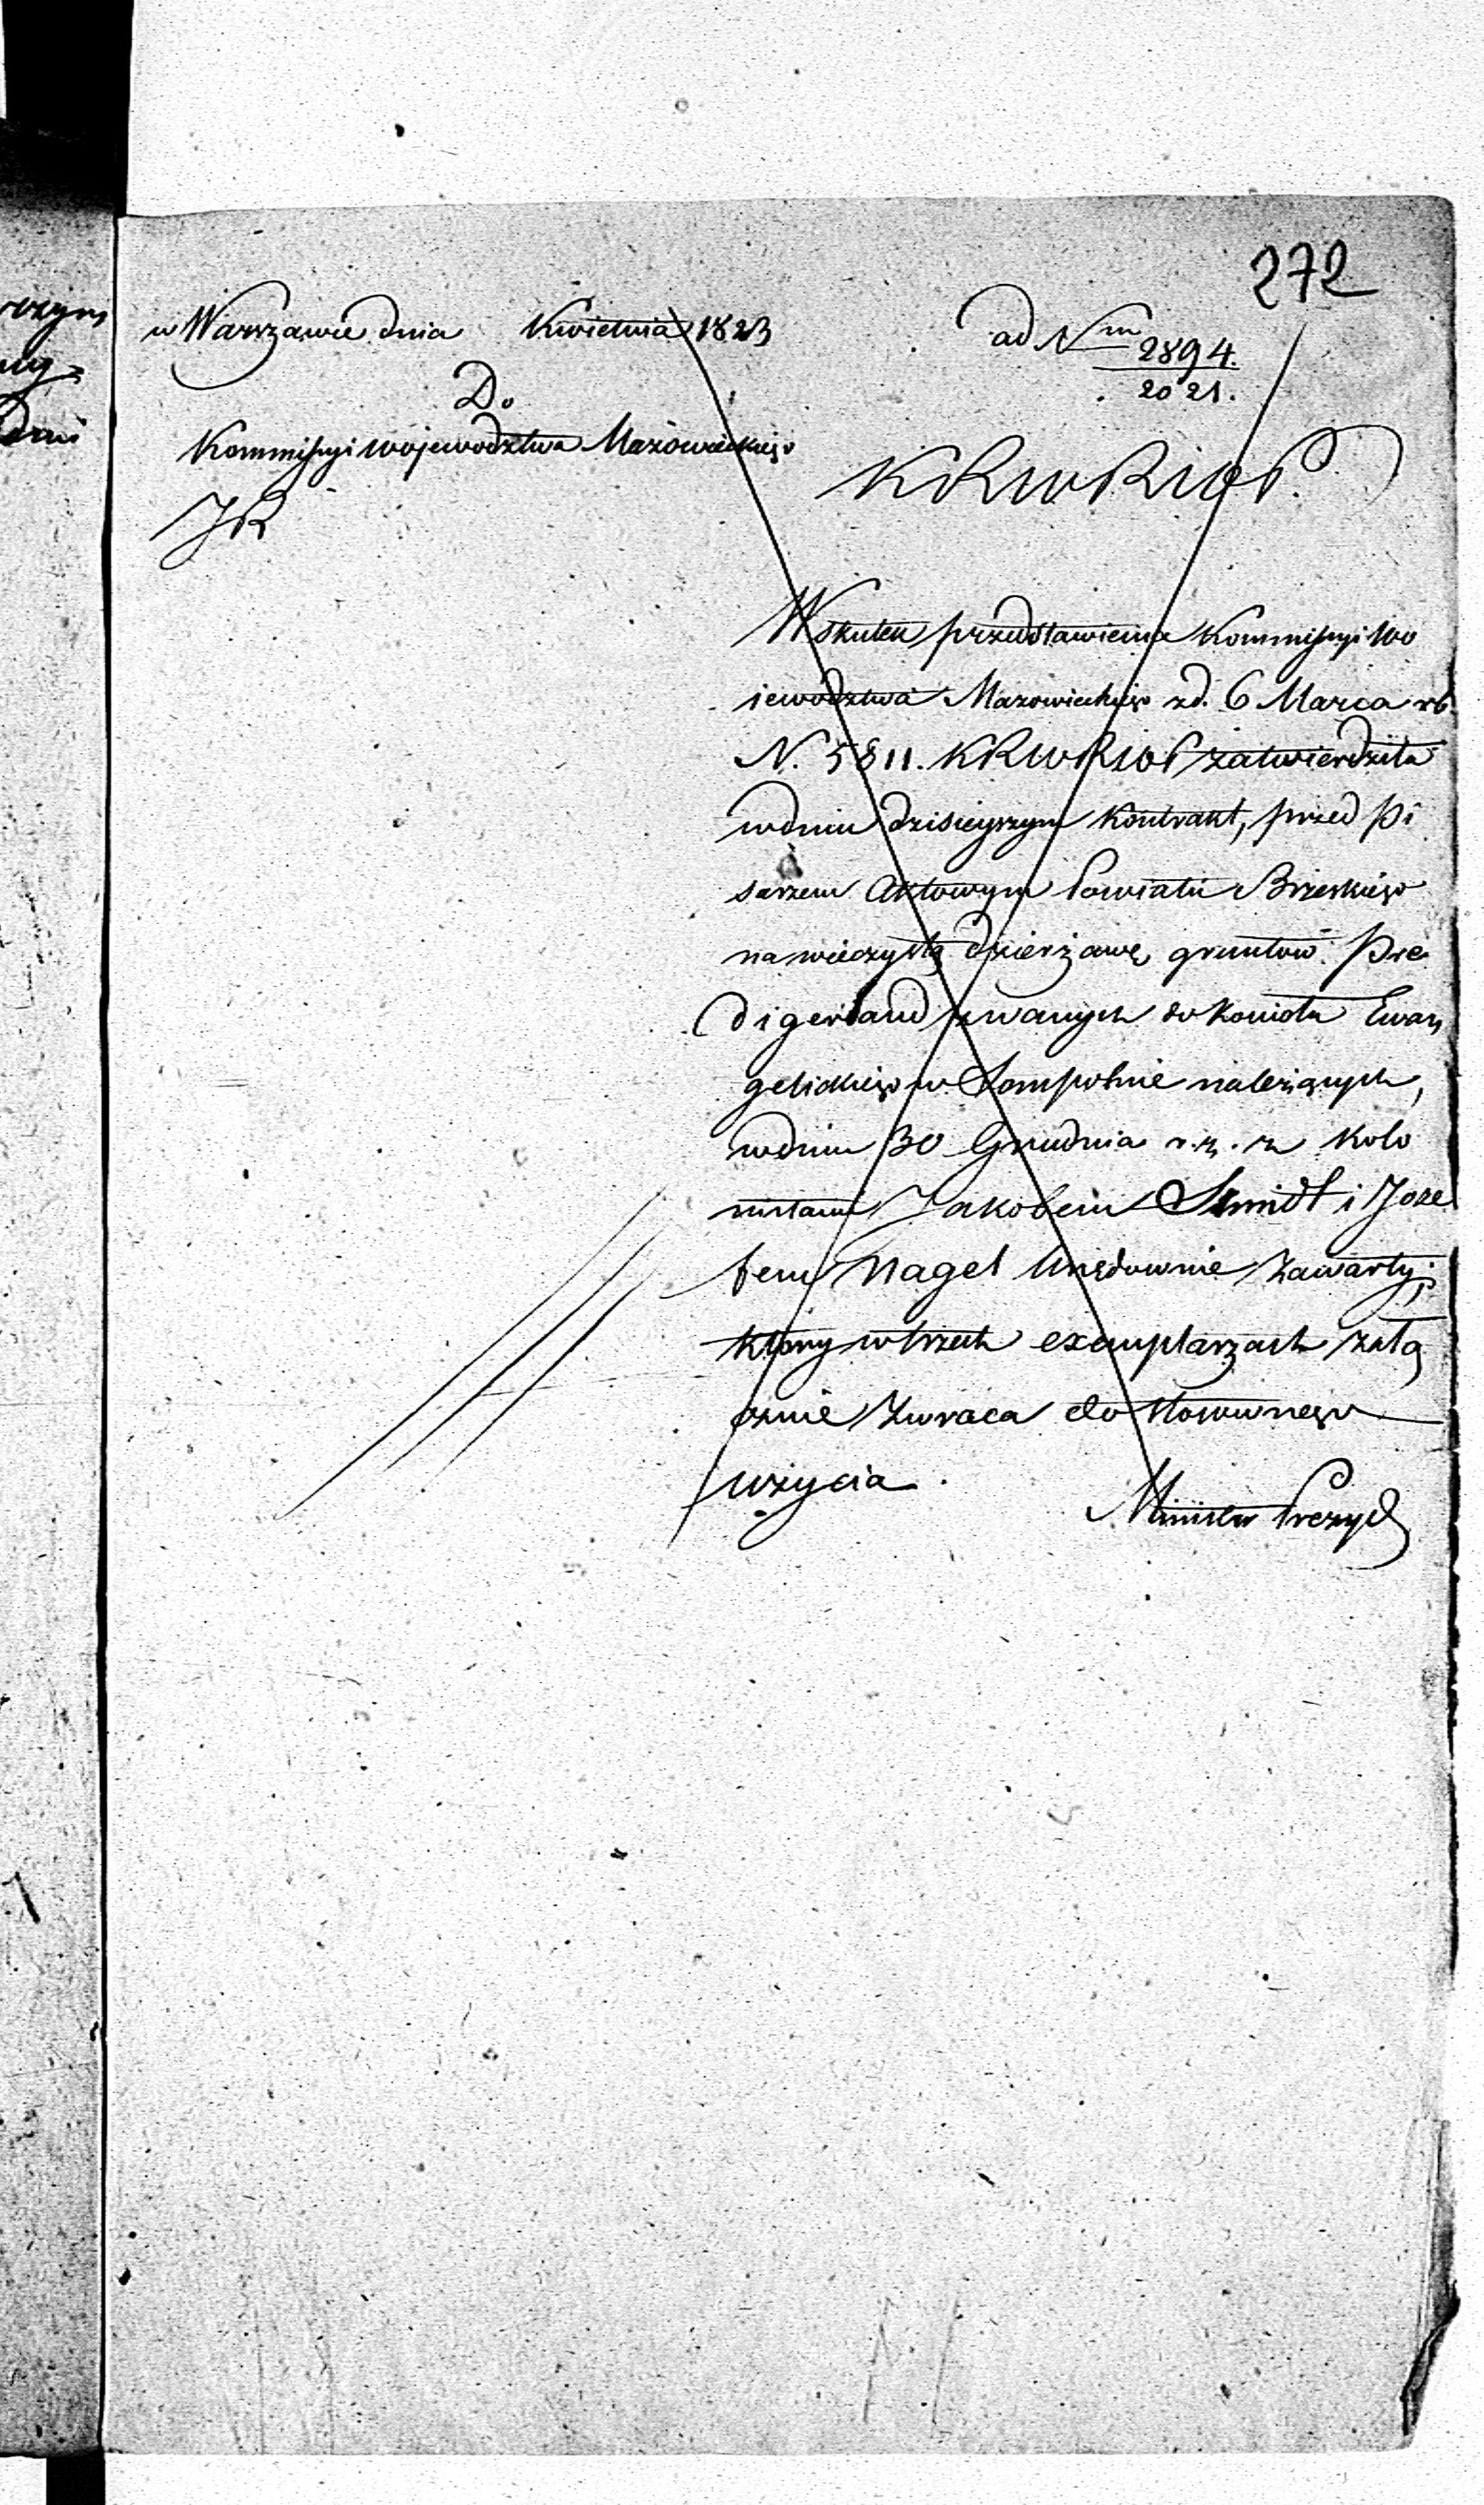 272
w Warszawie dnia Kwietnia 1823
ad Nm 2894.
2021.
Do
Kommissyi Województwa Mazowieckiego
KRWRiOP.
JR
W skutek przedstawienia Kommissyi Wo
iewództwa Mazowieckiego zd. 6 Marca rb.
N. 5811. KRWRiOP zatwierdziła
w dniu dzisieyszym kontrakt, przed Pi
sarzem Aktowym Powiatu Brzeskiego
na wieczystą dzierżawę gruntów Pre
digerland zwanych do kościoła Ewan
gelickiego w Sompolnie należących,
w dniu 30 Grudnia r. z. z kolo
nistami Jakobem Szmidt i Joze
fem Nagel Urzędownie zawarty;
który w trzech exemplarzach załą
cznie zwraca do stosownego
użycia.
Minister Prezyd